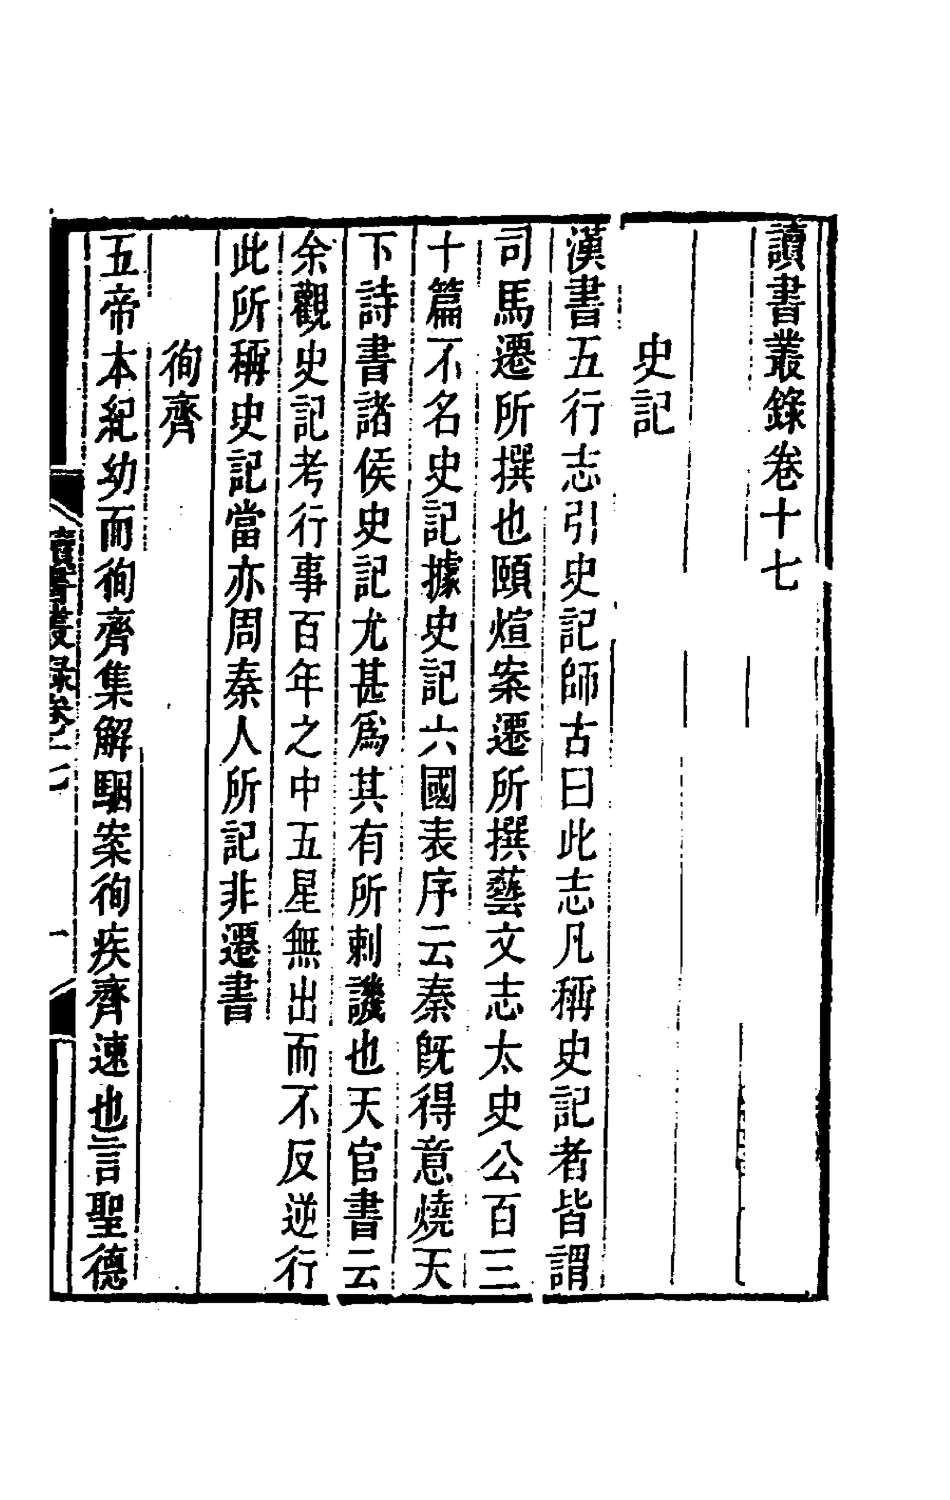 讀書叢錄卷十七
史記
漢書五行志引史記師古曰此志凡稱史記者皆謂
司馬遷所撰也頤煊案遷所撰藝文志太史公百三
十篇不名史記據史記六國表序云秦旣得意燒天
下詩書諸侯史記尤甚爲其有所刺譏也天官書云
余觀史記考行事百年之中五星無出而不反逆行
此所稱史記當亦周秦人所記非遷書
徇齊
五帝本紀幼而徇齊集解駰案徇疾齊速也言聖德
讀書叢錄卷十七
一